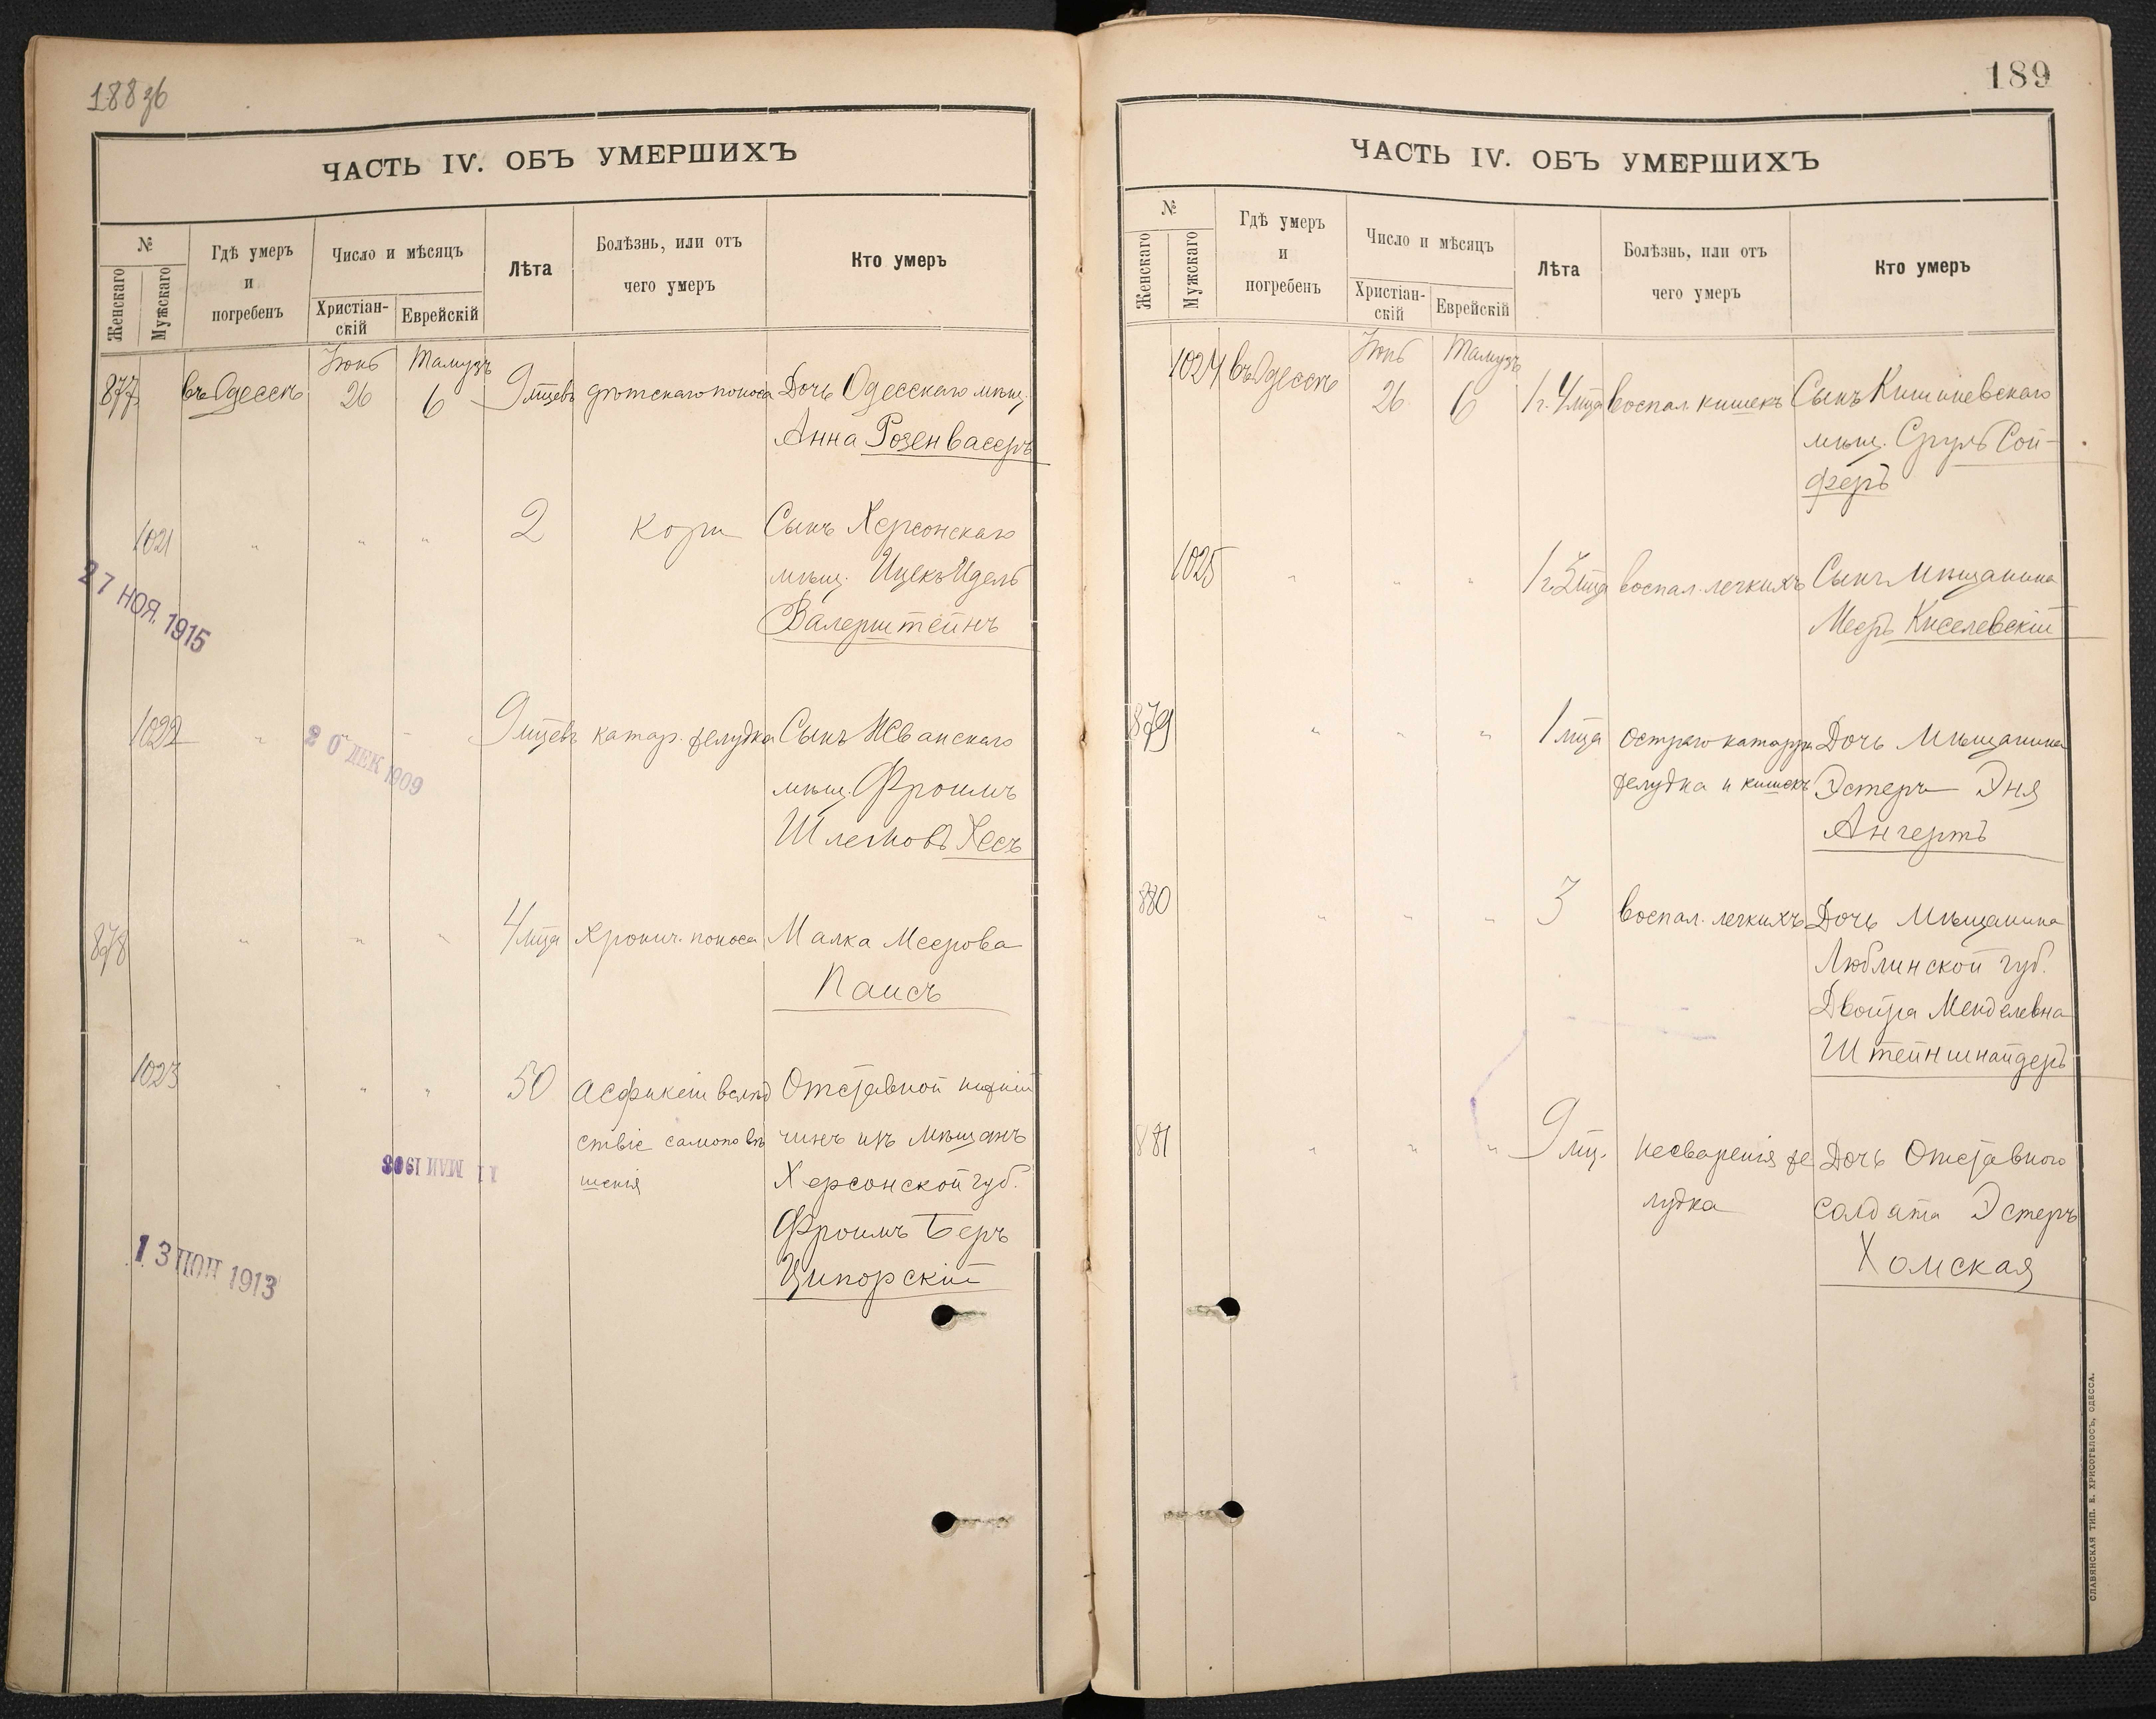 188 зв
ЧАСТЬ IV. ОБЪ УМЕРШИХЪ
№
Женскаго
Мужскаго
Гдѣ умеръ
и
погребенъ
Число и мѣсяцъ
Христіан-
скій
Еврейскій
Лѣта
Болѣзнь, или отъ
чего умеръ
Кто умеръ
Іюнь Тамузъ
877 въ Одессѣ 26 6 9 мцевъ дѣтскаго поноса Дочь Одесскаго мѣщ.
Анна Розенвассеръ
1021 " " " 2 Кори Сынъ Херсонскаго
мѣщ. Ицекъ Идель
Валерштейнъ
27 НОЯ. 1915
1022 " " " 9 мцевъ катар. желудка Сынъ
20 ДЕК 1909
мѣщ. Фроимъ
Хесъ
878 " " " 4 мца хронич. поноса Малка Меерова
Паисъ
1023 " " " 50 Асфиксіи вслѣд Отставной нижній
ствіе самоповѣ чинъ изъ мѣщанъ
11 МАЙ 1908
шенія Херсонской губ.
Фроимъ Беръ
Ципорскій
13 ИЮН 1913
189
ЧАСТЬ IV. ОБЪ УМЕРШИХЪ
№
Женскаго
Мужскаго
Гдѣ умеръ
и
погребенъ
Число и мѣсяцъ
Христіан-
скій
Еврейскій
Лѣта
Болѣзнь, или отъ
чего умеръ
Кто умеръ
Іюнь Тамузъ
1024 въ Одессѣ 26 6 1 г. 4 мца воспал. кишекъ Сынъ Кишиневскаго
мѣщ. Сруль Сой-
феръ
1025 " " " 1 г. 2 мца воспал. легкихъ Сынъ Мѣщанина
Мееръ Киселевскій
879 " " " 1 мца остраго катарра Дочь Мѣщанина
желудка и кишекъ Эстеръ Эня
Ангертъ
880 " " " 3 воспал. легкихъ Дочь Мѣщанина
Люблинской губ.
Двойра Менделевна
Штейншнайдеръ
881 " " " 9 мц. несваренія же Дочь Отставного
лудка солдата Эстеръ
Хомская
СЛАВЯНСКАЯ ТИП. Е. ХРИСОГЕЛОСЪ, ОДЕССА.